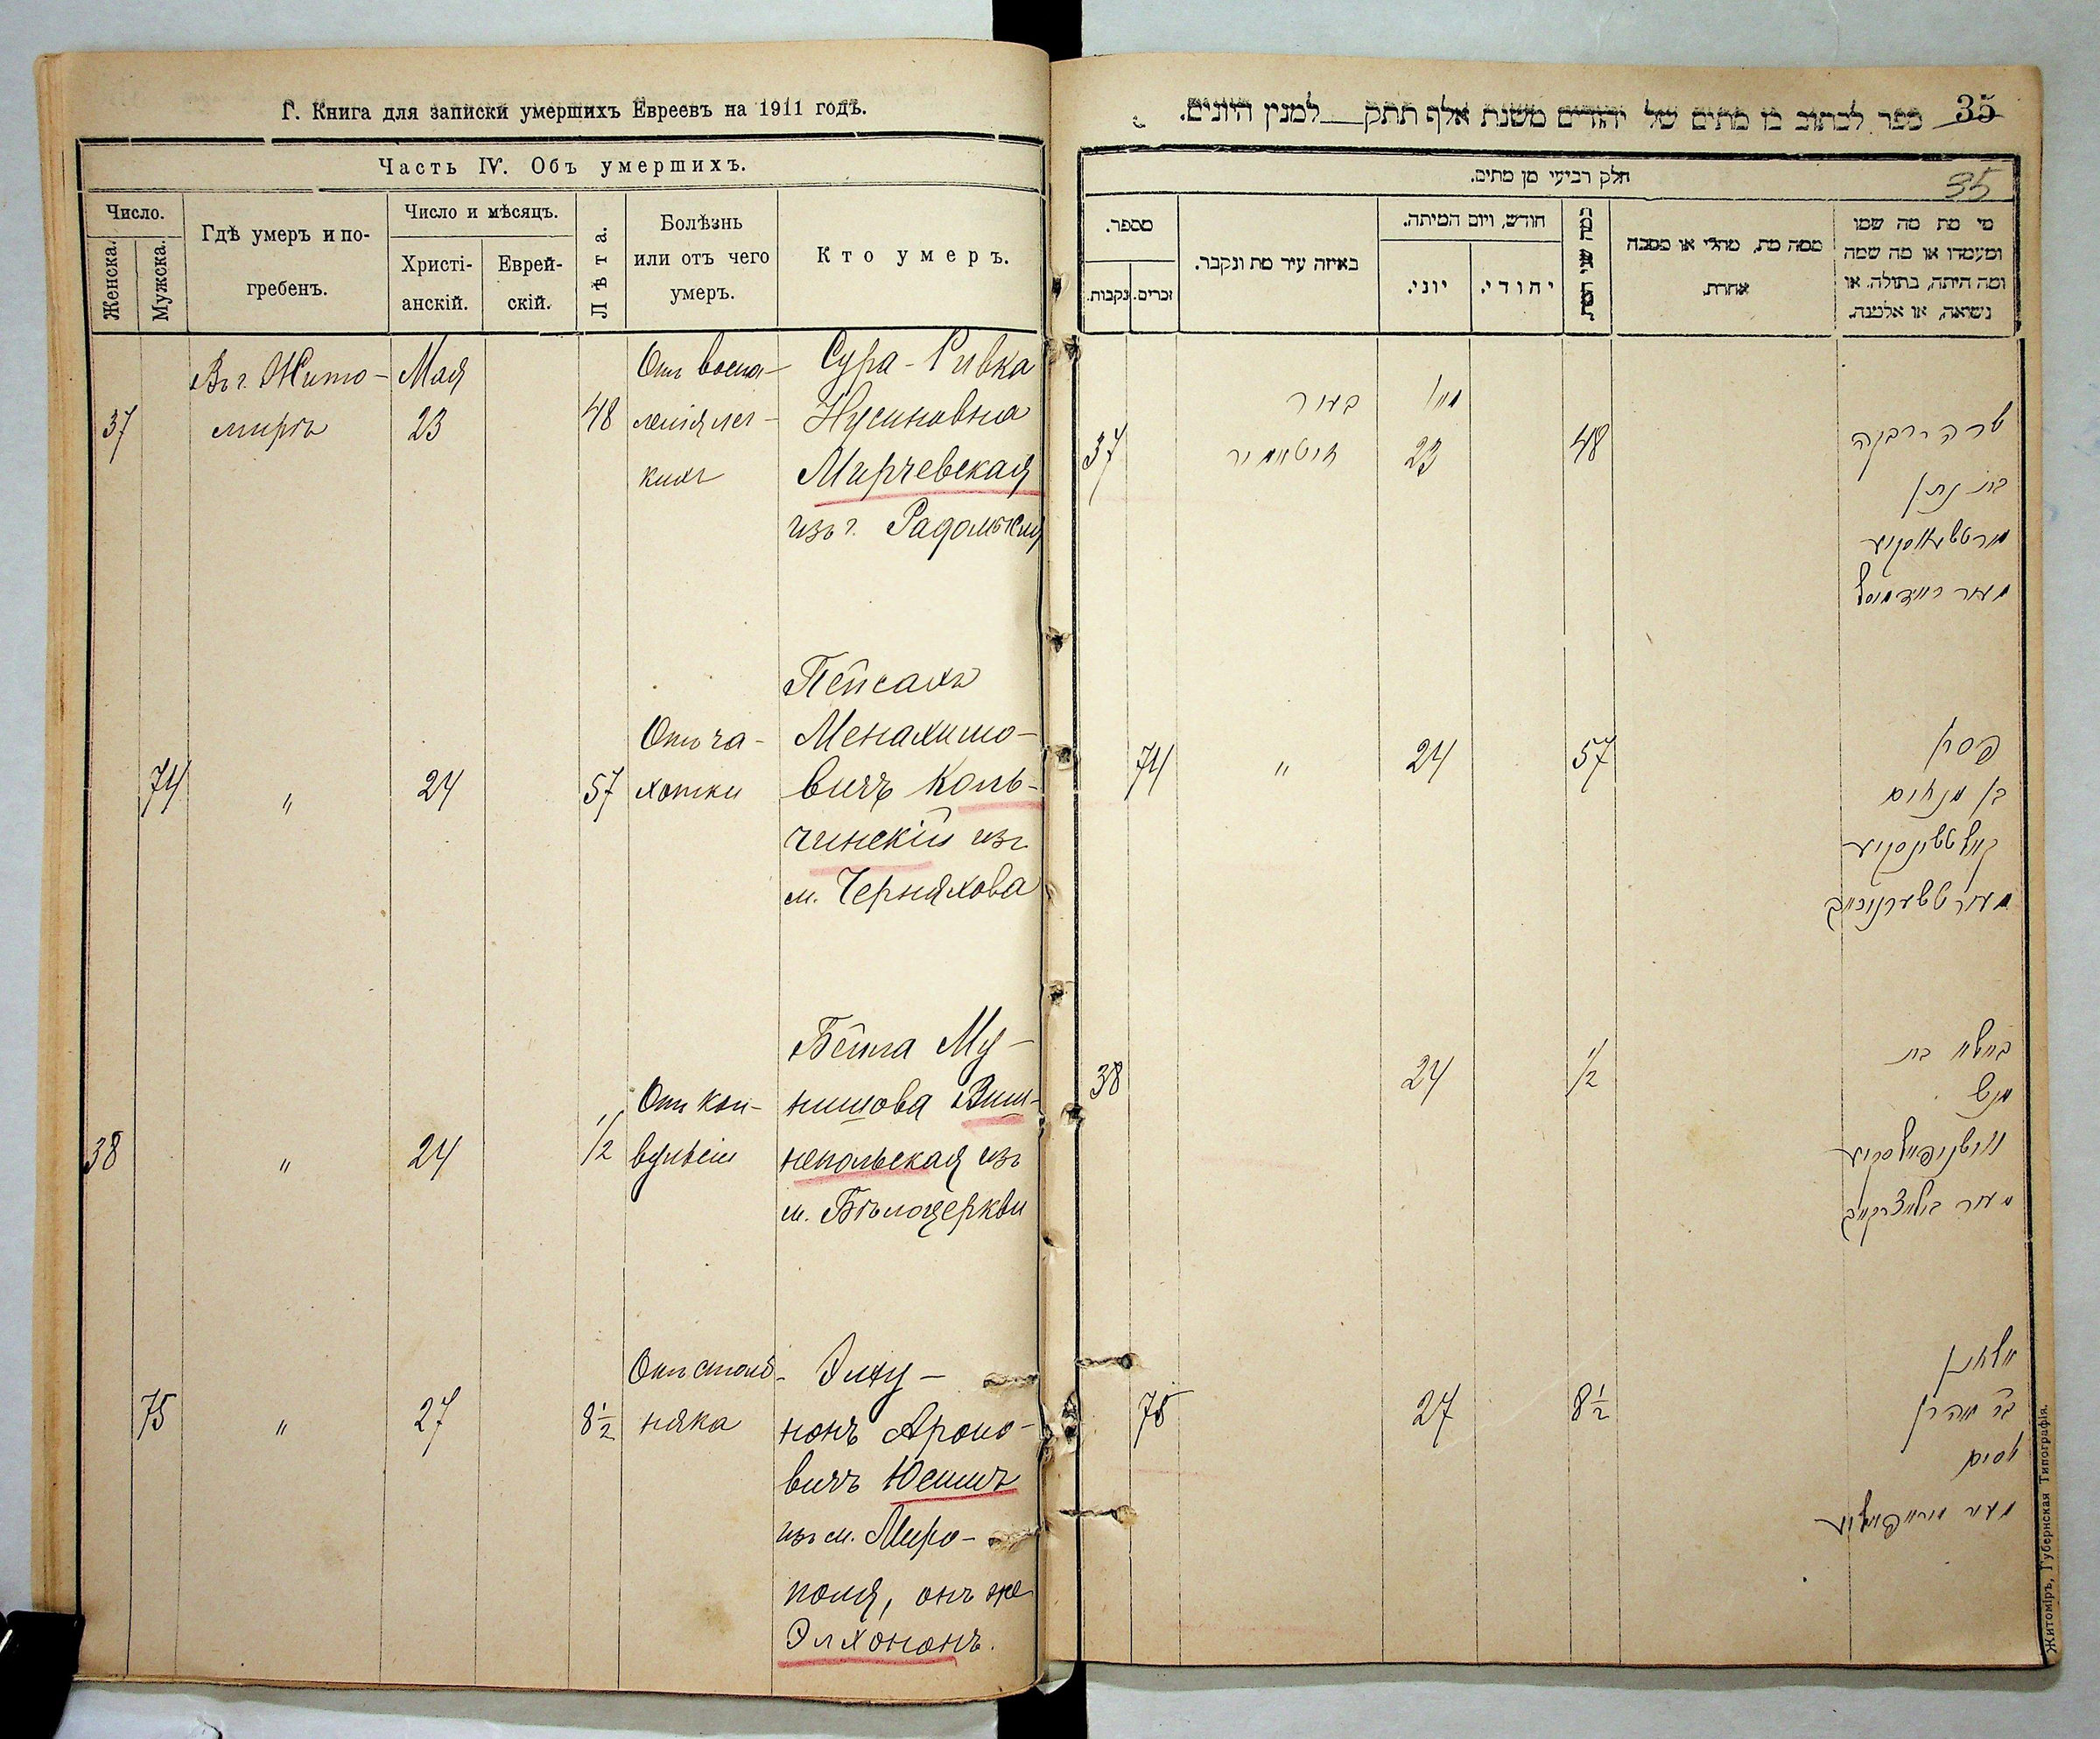 Г. Книга для записки умершихъ Евреевъ на 1911 годъ.
Часть IV. Объ умершихъ.
Число.
Женска.
Мужска.
Гдѣ умеръ и по-
гребенъ.
Число и мѣсяцъ.
Христі-
анскій.
Еврей-
скій.
Лѣта.
Болѣзнь
или отъ чего
умеръ.
Кто умеръ.
37
Въ г. Жито-
мирѣ
Мая
23
48
Отъ воспа-
ленія лег-
кихъ
Сура-Ривка
Нусиновна
Мирчевская
изъ г. Радомысля
74
"
24
57
Отъ ча-
хотки
Пейсахъ
Менахимо-
вичъ Коль-
чинскій изъ
м. Черняхова
38
"
24
1/2
Отъ кон-
вульсіи
Бейла Му-
нишова Виш-
непольская изъ
м. Бѣлоцеркви
75
"
27
8 1/2
Отъ столб-
няка
Элху-
нонъ Ароно-
вичъ Юсимъ
изъ м. Миро-
поля, онъ же
Элхононъ.
ספר לכתוב בו מתים של יהודים משנת אלף תתק למנין היונים.
35
חלק רביעי מן מתים.
35
מספר.
נקבות.
זכרים.
באיזה עיר מת ונקבר.
חודש, ויום המיתה.
יוני.
יהודי.
כמה שני המת
ממה מת, מחלי או מסבה
אחרת.
מי מת מה שמו
ומעמדו או מה שמה
ומה היתה, בתולה, או
נשואה, או אלמנה.
37
בעיר
זיטאמיר
מאי
23
48
שרה רבקה
בת נתן
מירטשעווסקיע
מעיר ראדמוסל
74
"
24
57
פסח
בן מנחום
קאלטשינסקיע
מעיר טשערנוכאוו
38
24
1/2
ביילא בת
מניש
ווישניפאלסקיע
מעיר
75
27
8 1/2
אלחנן
בר אהרן
יוסים
מעיר מיראפאליע
Житоміръ, Губернская Типографія.